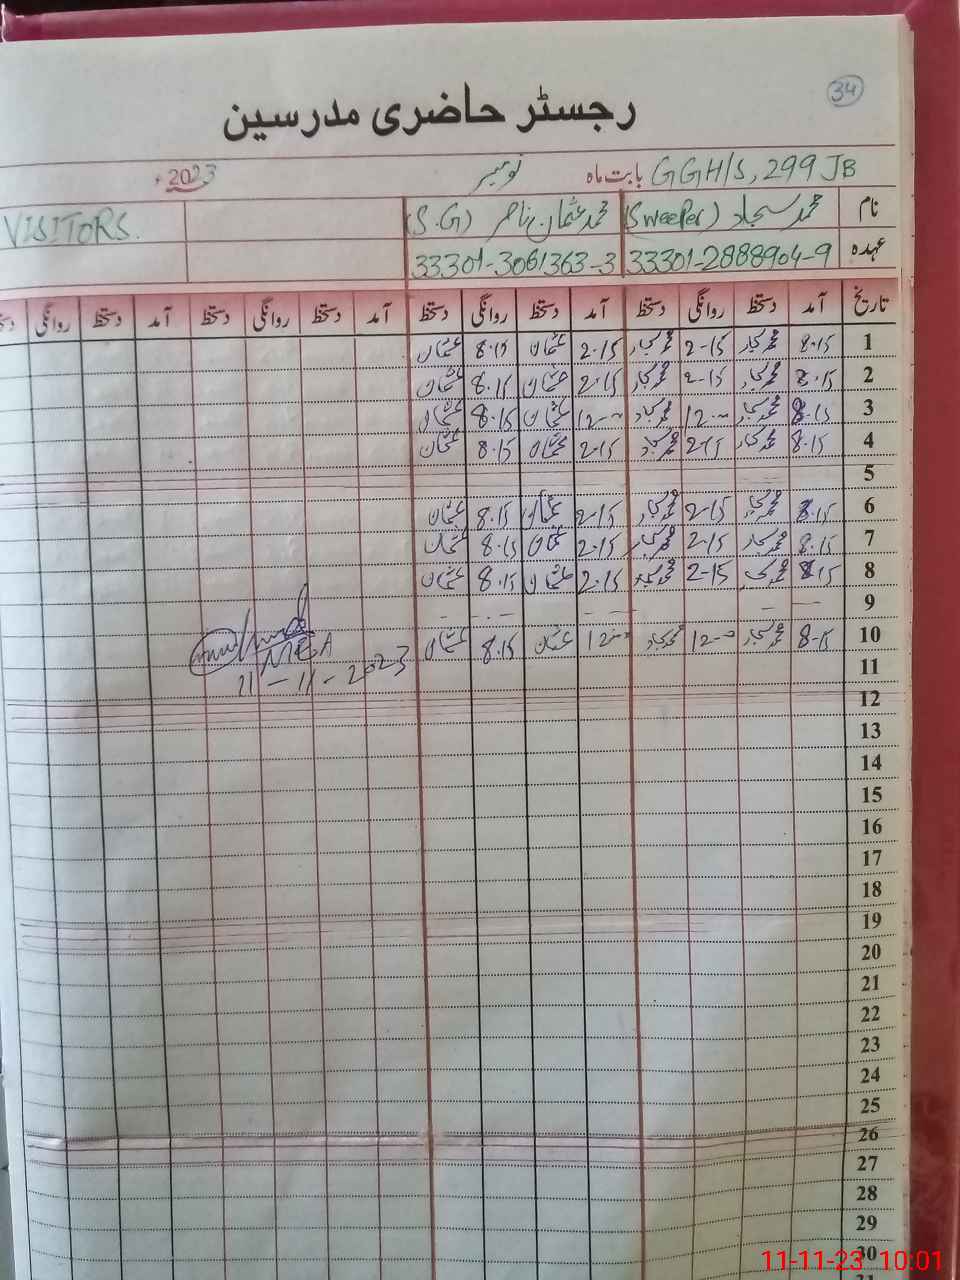 34
رجسٹر حاضری مدرسین
GGH/S, 299 JB بابت ماہ نومبر 2023ء
نام محمد سجاد (Sweeper) محمد عثمان ناصر (S.G) VISITORS.
عہدہ 33301-2888904-9 33301-3061363-3
تاریخ آمد دستخط روانگی دستخط آمد دستخط روانگی دستخط آمد دستخط روانگی دستخط آمد دستخط روانگی
1 8.15 محمد سجاد 2-15 محمد سجاد 2.15 عثمان 8.15 عثمان
2 8.15 محمد سجاد 2-15 محمد سجاد 2.15 عثمان 8.15 عثمان
3 8.15 محمد سجاد 12 محمد سجاد 12 عثمان 8.15 عثمان
4 8.15 محمد سجاد 2-15 محمد سجاد 2-15 عثمان 8.15 عثمان
5
6 8.15 محمد سجاد 2-15 محمد سجاد 2-15 عثمان 8.15 عثمان
7 8.15 محمد سجاد 2-15 محمد سجاد 2.15 عثمان 8.15 عثمان
8 8.15 محمد سجاد 2-15 محمد سجاد 2.15 عثمان 8.15 عثمان
9
10 8-15 محمد سجاد 12 محمد سجاد 12 عثمان 8.15 عثمان
MEA
11
11-11-2023
12
13
14
15
16
17
18
19
20
21
22
23
24
25
26
27
28
29
30
31
11-11-23 10:01